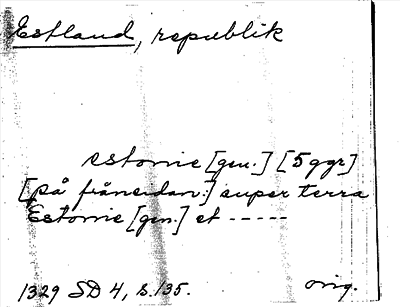 Estland, republik
estonie [gen.] [5 ggr]
[på frånsidan:] super terra
Estonie [gen.] et -----
1329 SD 4, s. 135. orig.